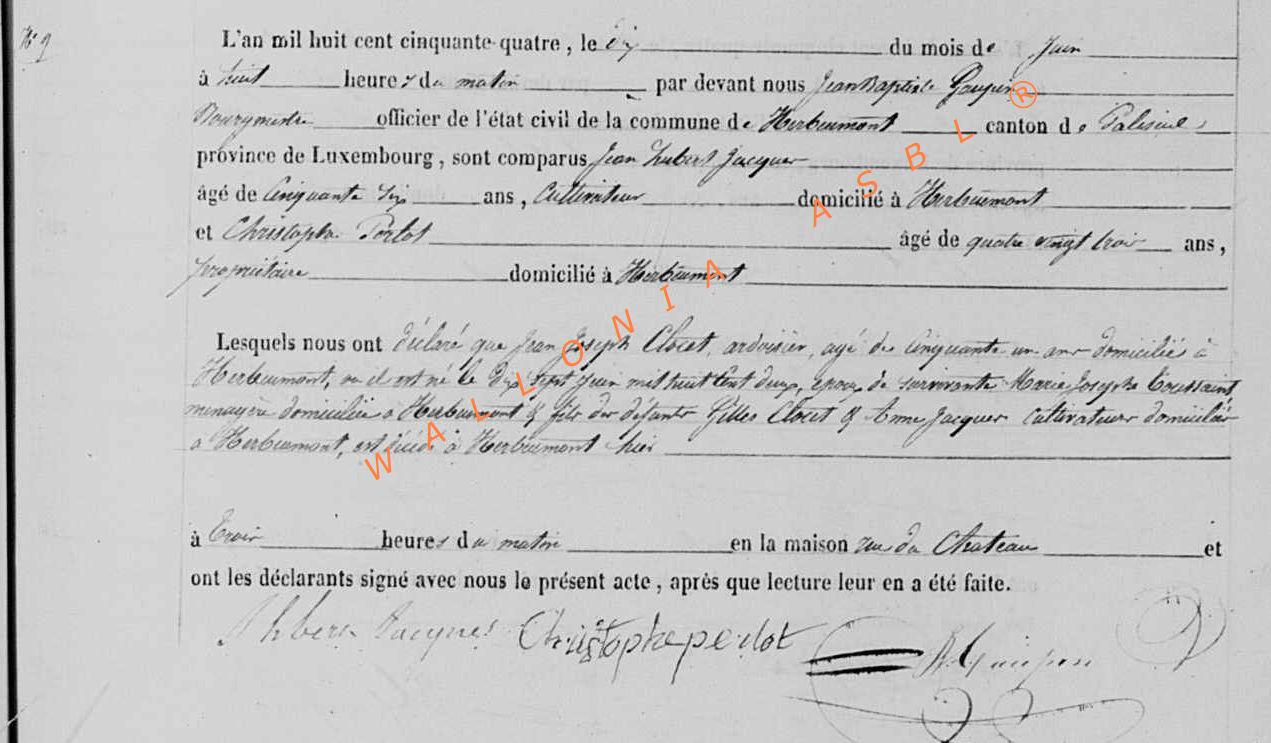 N° 9
L'an mil huit cent cinquante-quatre, le dix du mois de Juin
à huit heures du matin par devant nous Jean Baptiste
Bourgmestre officier de l'état civil de la commune de Herbeumont canton de Paliseul
province de Luxembourg, sont comparus Jean hubert Jacques
âgé de Cinquante six ans, Cultivateur domicilié à Herbeumont
et Christophe Perlot âgé de quatre vingt trois ans,
propriétaire domicilié à Herbeumont
Lesquels nous ont déclaré que Jean Joseph Closet, ardoisier, agé de cinquante un ans domicilié à
Herbeumont, ou il est né le dix sept Juin mil huit cent deux, epoux de survivante Marie Josephe Toussaint,
menagère domiciliée à Herbeumont & fils des défunts Gilles Closet & Anne Jacques cultivateurs domiciliés
à Herbeumont, est décédé à Herbeumont hier
à Trois heures du matin en la maison rue du Chateau et
ont les déclarants signé avec nous le présent acte, après que lecture leur en a été faite.
Jacques Christophe perlot
WALLONIA ASBL ®